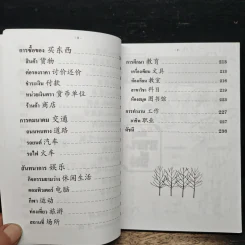 การซื้อของ 买东西
สินค้า 货物
ต่อรองราคา 讨价还价
ชำระเงิน 付款
หน่วยเงินตรา 货币单位
ร้านค้า 商店
การคมนาคม 交通
ถนนหนทาง 道路
รถยนต์ 汽车
รถไฟ 火车
สันทนาการ 娱乐
กิจกรรมยามว่าง 休闲生活
คอมพิวเตอร์ 电脑
กีฬา 运动
ท่องเที่ยว 旅游
สถานที่ 场所
การศึกษา 教育
เครื่องเขียน 文具
ห้องเรียน 教室
รายวิชา 科目
ห้องสมุด 图书馆
การทำงาน 工作
อาชีพ 职业
ดัชนี